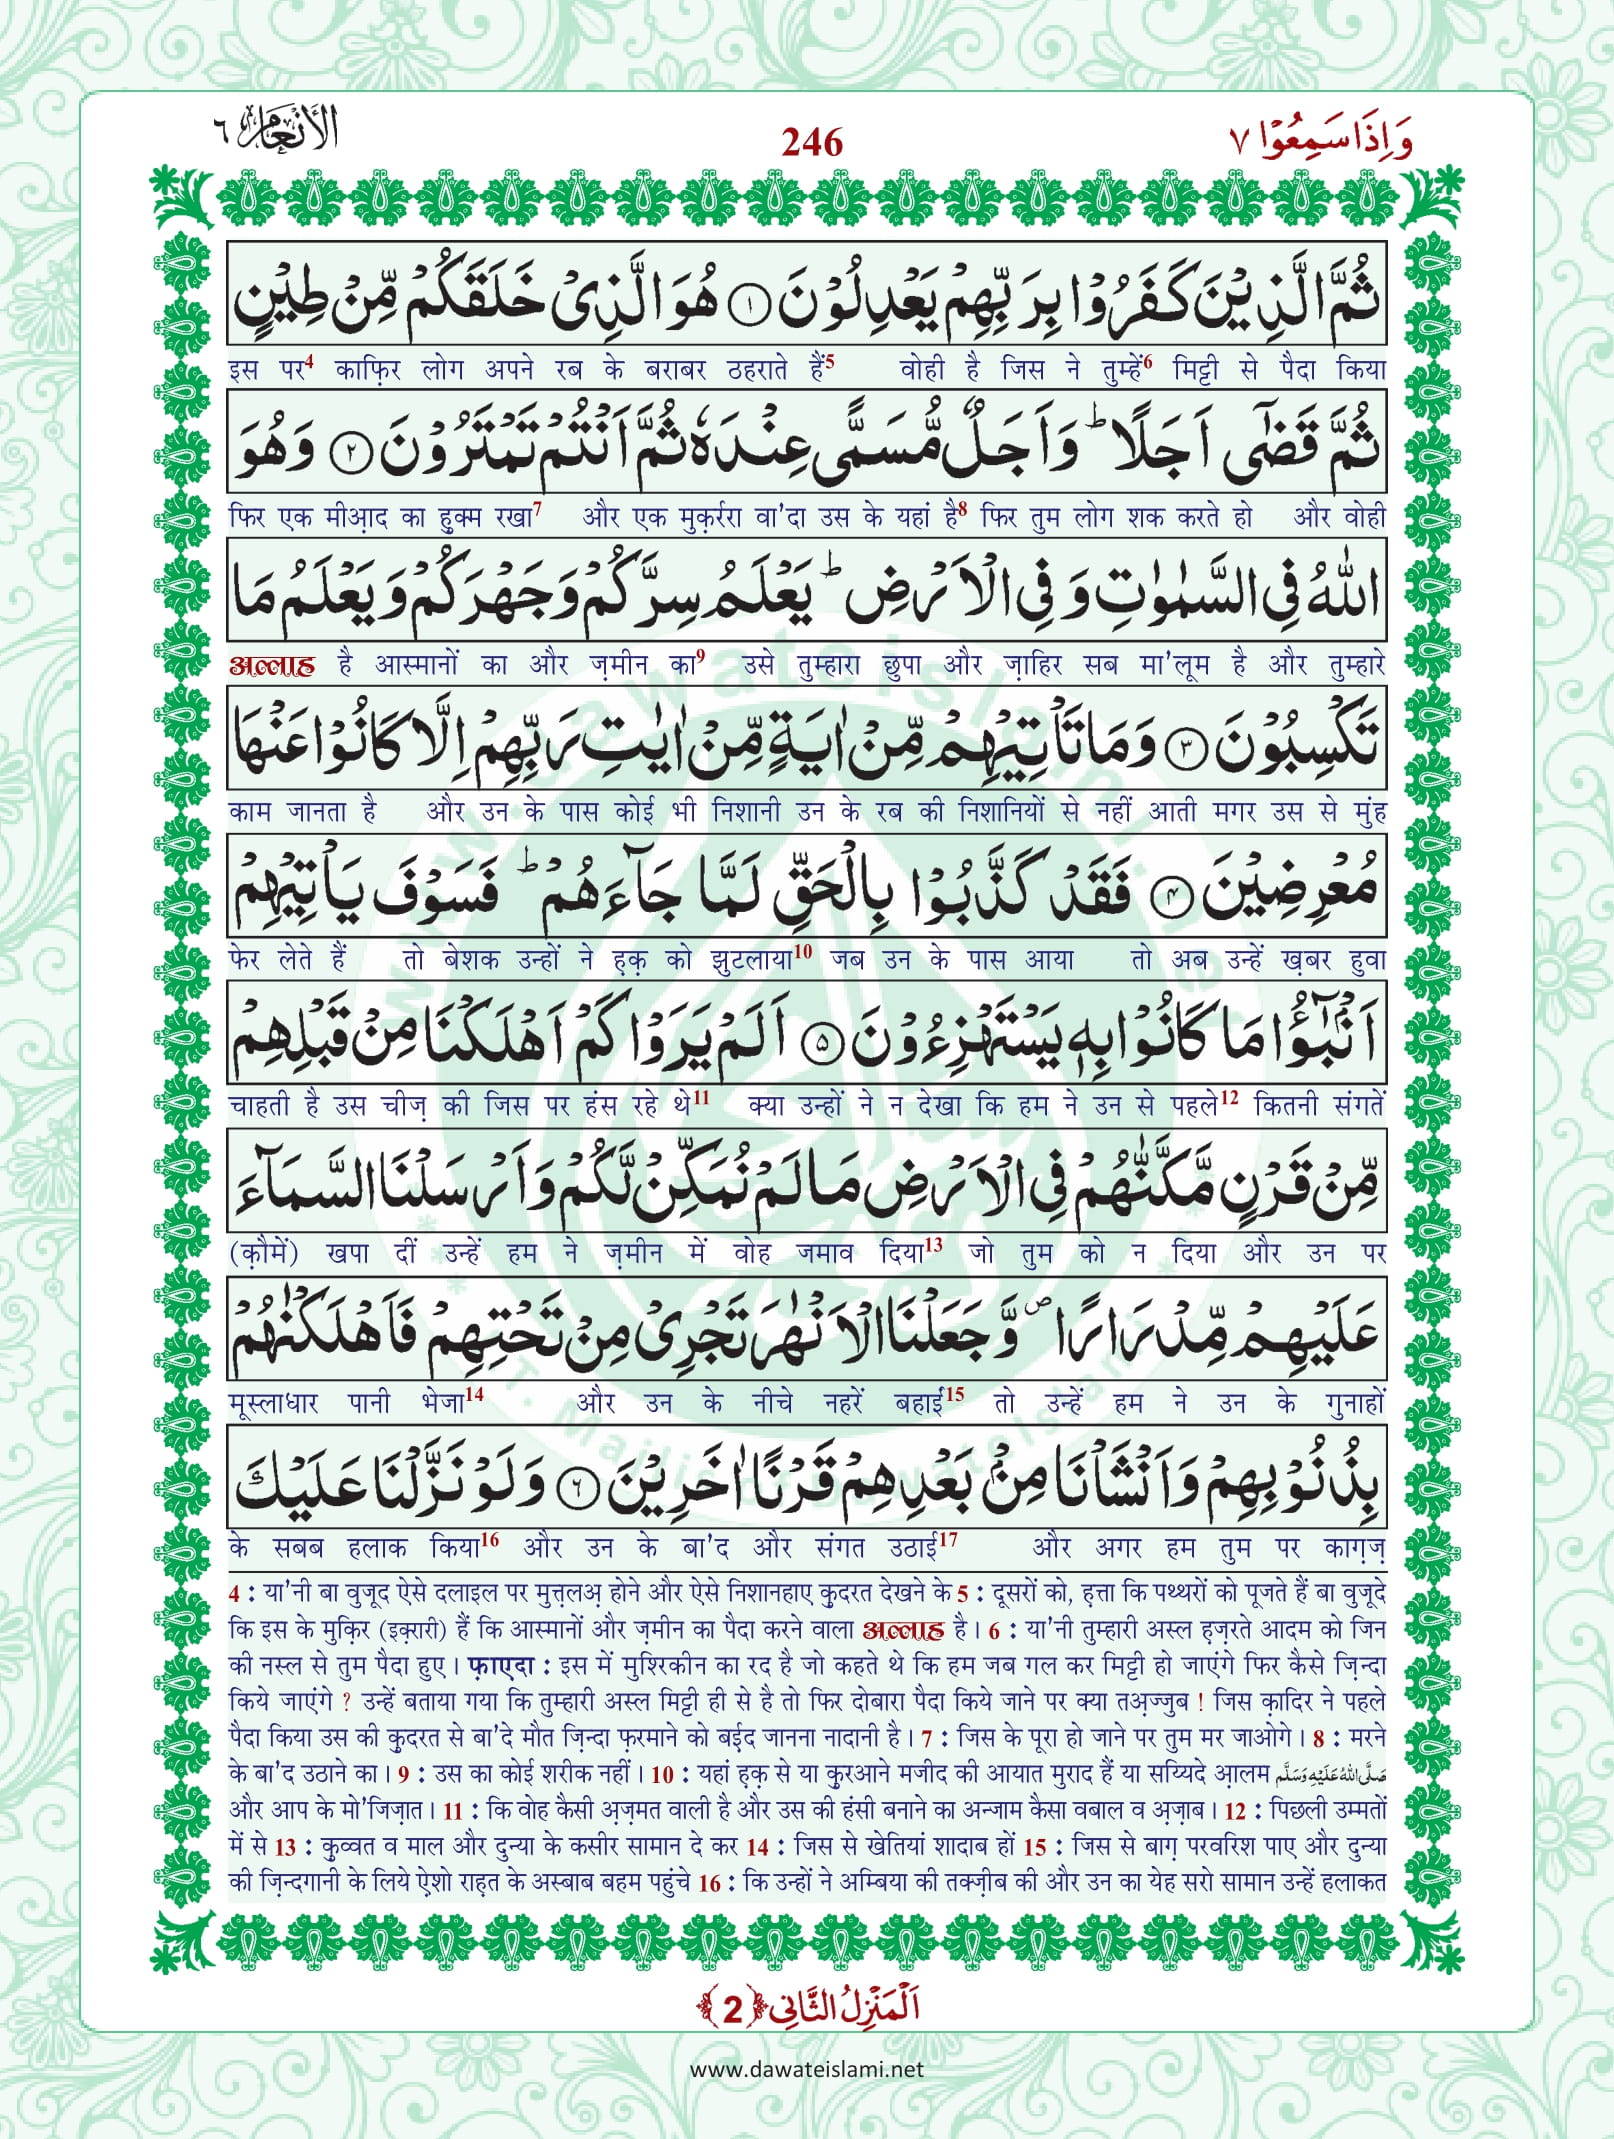 وَاِذَا سَمِعُوْا ٧
246
الْاَنْعَام ٦
ثُمَّ الَّذِیْنَ كَفَرُوْا بِرَبِّهِمْ یَعْدِلُوْنَ ۝۱ هُوَ الَّذِیْ خَلَقَكُمْ مِّنْ طِیْنٍ
इस पर4 काफ़िर लोग अपने रब के बराबर ठहराते हैं5 वोही है जिस ने तुम्हें6 मिट्टी से पैदा किया
ثُمَّ قَضٰۤی اَجَلًا ؕ وَ اَجَلٌ مُّسَمًّی عِنْدَهٗ ثُمَّ اَنْتُمْ تَمْتَرُوْنَ ۝۲ وَ هُوَ
फिर एक मीआ़द का हुक्म रखा7 और एक मुक़र्ररा वा'दा उस के यहां है8 फिर तुम लोग शक करते हो और वोही
اللّٰهُ فِی السَّمٰوٰتِ وَ فِی الْاَرْضِ ؕ یَعْلَمُ سِرَّكُمْ وَ جَهْرَكُمْ وَ یَعْلَمُ مَا
अल्लाह है आस्मानों का और ज़मीन का9 उसे तुम्हारा छुपा और ज़ाहिर सब मा'लूम है और तुम्हारे
تَكْسِبُوْنَ ۝۳ وَ مَا تَاْتِیْهِمْ مِّنْ اٰیَةٍ مِّنْ اٰیٰتِ رَبِّهِمْ اِلَّا كَانُوْا عَنْهَا
काम जानता है और उन के पास कोई भी निशानी उन के रब की निशानियों से नहीं आती मगर उस से मुंह
مُعْرِضِیْنَ ۝۴ فَقَدْ كَذَّبُوْا بِالْحَقِّ لَمَّا جَآءَهُمْ ؕ فَسَوْفَ یَاْتِیْهِمْ
फेर लेते हैं तो बेशक उन्हों ने ह़क़ को झुटलाया10 जब उन के पास आया तो अब उन्हें ख़बर हुवा
اَنْۢبٰٓؤُا مَا كَانُوْا بِهٖ یَسْتَهْزِءُوْنَ ۝۵ اَلَمْ یَرَوْا كَمْ اَهْلَكْنَا مِنْ قَبْلِهِمْ
चाहती है उस चीज़ की जिस पर हंस रहे थे11 क्या उन्हों ने न देखा कि हम ने उन से पहले12 कितनी संगतें
مِّنْ قَرْنٍ مَّكَّنّٰهُمْ فِی الْاَرْضِ مَا لَمْ نُمَكِّنْ لَّكُمْ وَ اَرْسَلْنَا السَّمَآءَ
(क़ौमें) खपा दीं उन्हें हम ने ज़मीन में वोह जमाव दिया13 जो तुम को न दिया और उन पर
عَلَیْهِمْ مِّدْرَارًا ۪ وَّ جَعَلْنَا الْاَنْهٰرَ تَجْرِیْ مِنْ تَحْتِهِمْ فَاَهْلَكْنٰهُمْ
मूस्लाधार पानी भेजा14 और उन के नीचे नहरें बहाईं15 तो उन्हें हम ने उन के गुनाहों
بِذُنُوْبِهِمْ وَ اَنْشَاْنَا مِنْۢ بَعْدِهِمْ قَرْنًا اٰخَرِیْنَ ۝۶ وَ لَوْ نَزَّلْنَا عَلَیْكَ
के सबब हलाक किया16 और उन के बा'द और संगत उठाई17 और अगर हम तुम पर काग़ज़
4 : या'नी बा वुजूद ऐसे दलाइल पर मुत़्त़लअ़ होने और ऐसे निशानहाए क़ुदरत देखने के 5 : दूसरों को, ह़त्ता कि पथ्थरों को पूजते हैं बा वुजूदे
कि इस के मुक़िर (इक़्रारी) हैं कि आस्मानों और ज़मीन का पैदा करने वाला अल्लाह है। 6 : या'नी तुम्हारी अस्ल ह़ज़रते आदम को जिन
की नस्ल से तुम पैदा हुए। फ़ाएदा : इस में मुश्रिकीन का रद है जो कहते थे कि हम जब गल कर मिट्टी हो जाएंगे फिर कैसे ज़िन्दा
किये जाएंगे ? उन्हें बताया गया कि तुम्हारी अस्ल मिट्टी ही से है तो फिर दोबारा पैदा किये जाने पर क्या तअ़ज्जुब ! जिस क़ादिर ने पहले
पैदा किया उस की क़ुदरत से बा'दे मौत ज़िन्दा फ़रमाने को बईद जानना नादानी है। 7 : जिस के पूरा हो जाने पर तुम मर जाओगे। 8 : मरने
के बा'द उठाने का। 9 : उस का कोई शरीक नहीं। 10 : यहां ह़क़ से या क़ुरआने मजीद की आयात मुराद हैं या सय्यिदे आ़लम صَلَّى اللهُ عَلَيْهِ وَسَلَّم
और आप के मो'जिज़ात। 11 : कि वोह कैसी अ़ज़मत वाली है और उस की हंसी बनाने का अन्जाम कैसा वबाल व अ़ज़ाब। 12 : पिछली उम्मतों
में से 13 : क़ुव्वत व माल और दुन्या के कसीर सामान दे कर 14 : जिस से खेतियां शादाब हों 15 : जिस से बाग़ परवरिश पाए और दुन्या
की ज़िन्दगानी के लिये ऐशो राह़त के अस्बाब बहम पहुंचे 16 : कि उन्हों ने अम्बिया की तक्ज़ीब की और उन का येह सरो सामान उन्हें हलाकत
اَلْمَنْزِلُ الثَّانِی ﴿2﴾
www.dawateislami.net